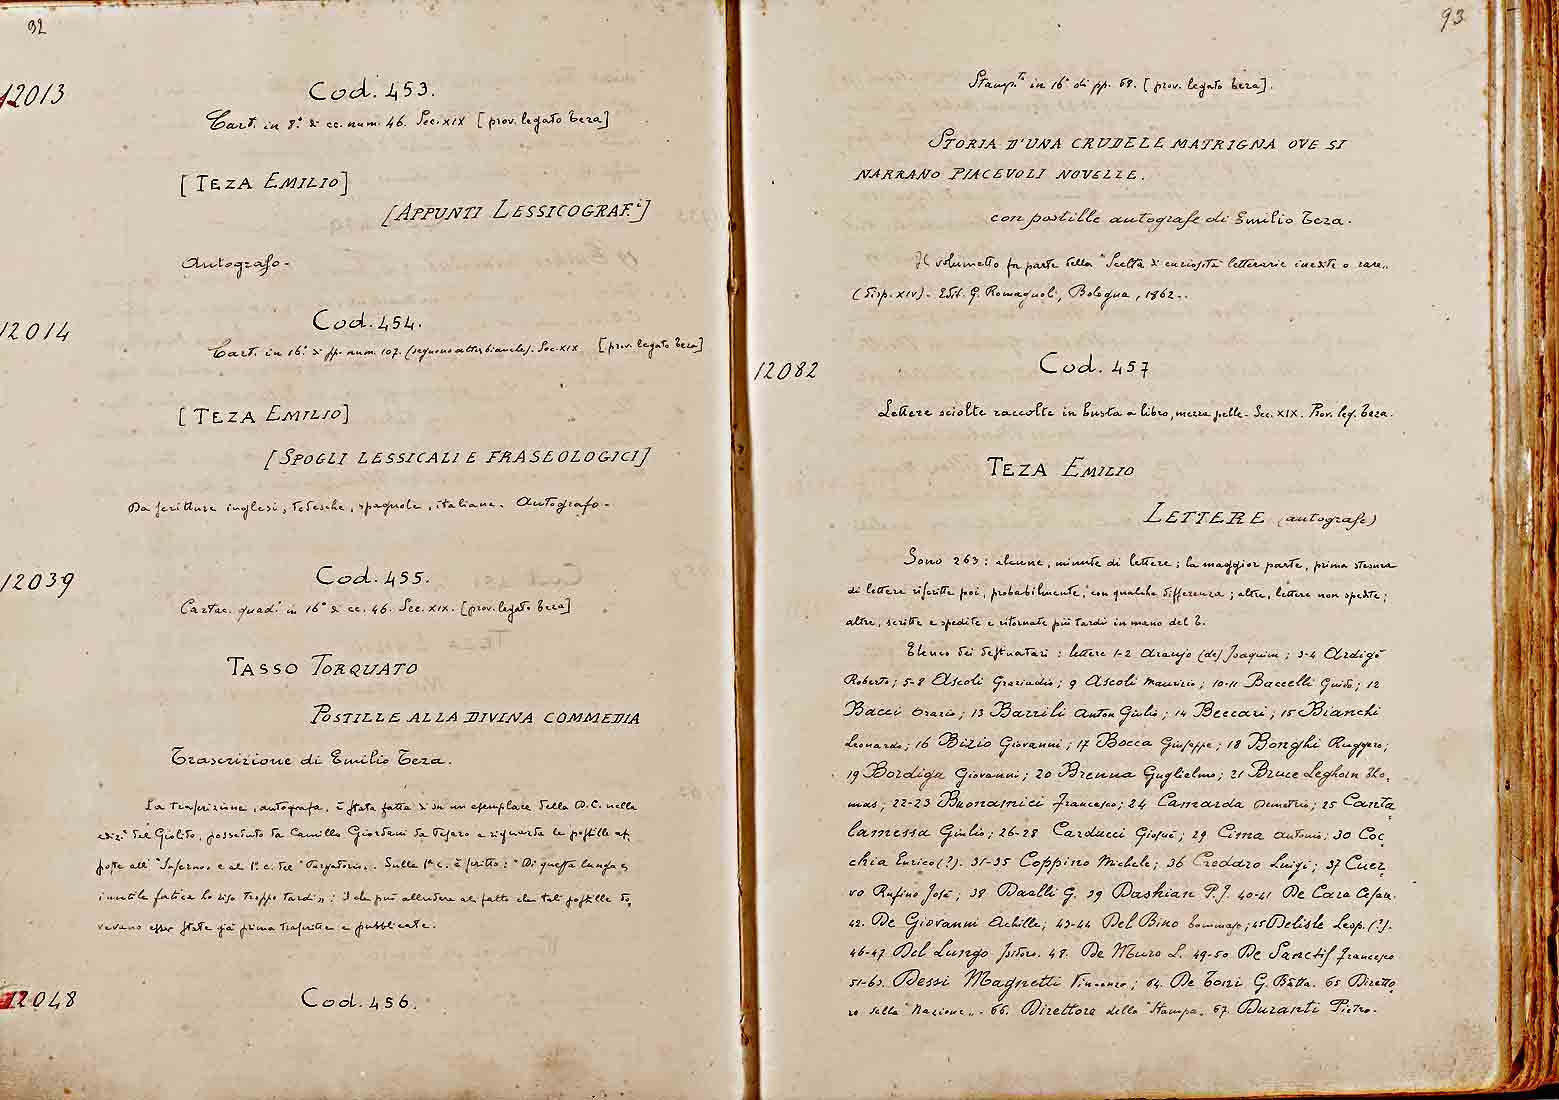 92
12013
Cod. 453.
Cart. in 8.° di cc. num. 46. Sec. XIX [prov. legato Teza]
[TEZA EMILIO]
[APPUNTI LESSICOGRAF.i]
Autografo.
12014
Cod. 454.
Cart. in 16.° di pp. num. 107. (seguono altre bianche). Sec. XIX [prov. legato Teza]
[TEZA EMILIO]
[SPOGLI LESSICALI E FRASEOLOGICI]
Da scritture inglesi, tedesche, spagnole, italiane. Autografo.
12039
Cod. 455.
Cartac. quad.i in 16° di cc. 46. Sec. XIX. [prov. legato Teza]
TASSO TORQUATO
POSTILLE ALLA DIVINA COMMEDIA
Trascrizione di Emilio Teza.
La trascrizione, autografa, è stata fatta di su un esemplare della D.C. nella
ediz.e del Giolito, posseduto da Camillo Giordani da Pesaro e riguarda le postille ap,
poste all' "Inferno" e al 1° c. del "Purgatorio". Sulla 1a c. è scritto: "Di questa lunga e
inutile fatica ho riso troppo tardi"; il che può alludere al fatto che tali postille do,
vevano esser state già prima trascritte e pubblicate.
12048
Cod. 456.
93
Stamp.to in 16° di pp. 68. [prov. legato Teza].
STORIA D'UNA CRUDELE MATRIGNA OVE SI
NARRANO PIACEVOLI NOVELLE.
con postille autografe di Emilio Teza.
Il volumetto fa parte della "Scelta di curiosità letterarie inedite o rare"
(disp. XIV). Edit. G. Romagnoli, Bologna, 1862.
12082
Cod. 457
Lettere sciolte raccolte in busta a libro, mezza pelle. Sec. XIX. Prov. leg. Teza.
TEZA EMILIO
LETTERE (autografe)
Sono 263: alcune, minute di lettere; la maggior parte, prima stesura
di lettere riscritte poi, probabilmente, con qualche differenza; altre, lettere non spedite;
altre, scritte e spedite e ritornate più tardi in mano del T.
Elenco dei destinatari: lettere 1-2 Araujo (de) Joaquim; 3-4 Ardigò
Roberto; 5-8 Ascoli Graziadio; 9 Ascoli Maurizio; 10-11 Baccelli Guido; 12
Bacci Orazio; 13 Barrili Anton Giulio; 14 Beccari; 15 Bianchi
Leonardo; 16 Bizio Giovanni; 17 Bocca Giuseppe; 18 Bonghi Ruggero;
19 Bordiga Giovanni; 20 Brenna Guglielmo; 21 Bruce Leghorn Tho,
mas; 22-23 Buonamici Francesco; 24 Camarda Demetrio; 25 Canta,
lamessa Giulio; 26-28 Carducci Giosuè; 29 Cima Antonio; 30 Coc,
chia Enrico (?). 31-35 Coppino Michele; 36 Creddro Luigi; 37 Cuer,
vo Rufino José; 38 Daalli G. 39 Dashian P.J. 40-41 De Cara Cesar.
42. De Giovanni Achille; 43-44 Del Bino Tommaso; 45 Delisle Leop. (?).
46-47 Del Lungo Isidoro. 48. De Muro L. 49-50 De Sanctis Francesco
51-63. Dessi Magnetti Vincenzo; 64. De Toni G. Batta. 65 Diretto,
re della "Nazione". 66. Direttore della "Stampa" 67. Duranti Pietro.